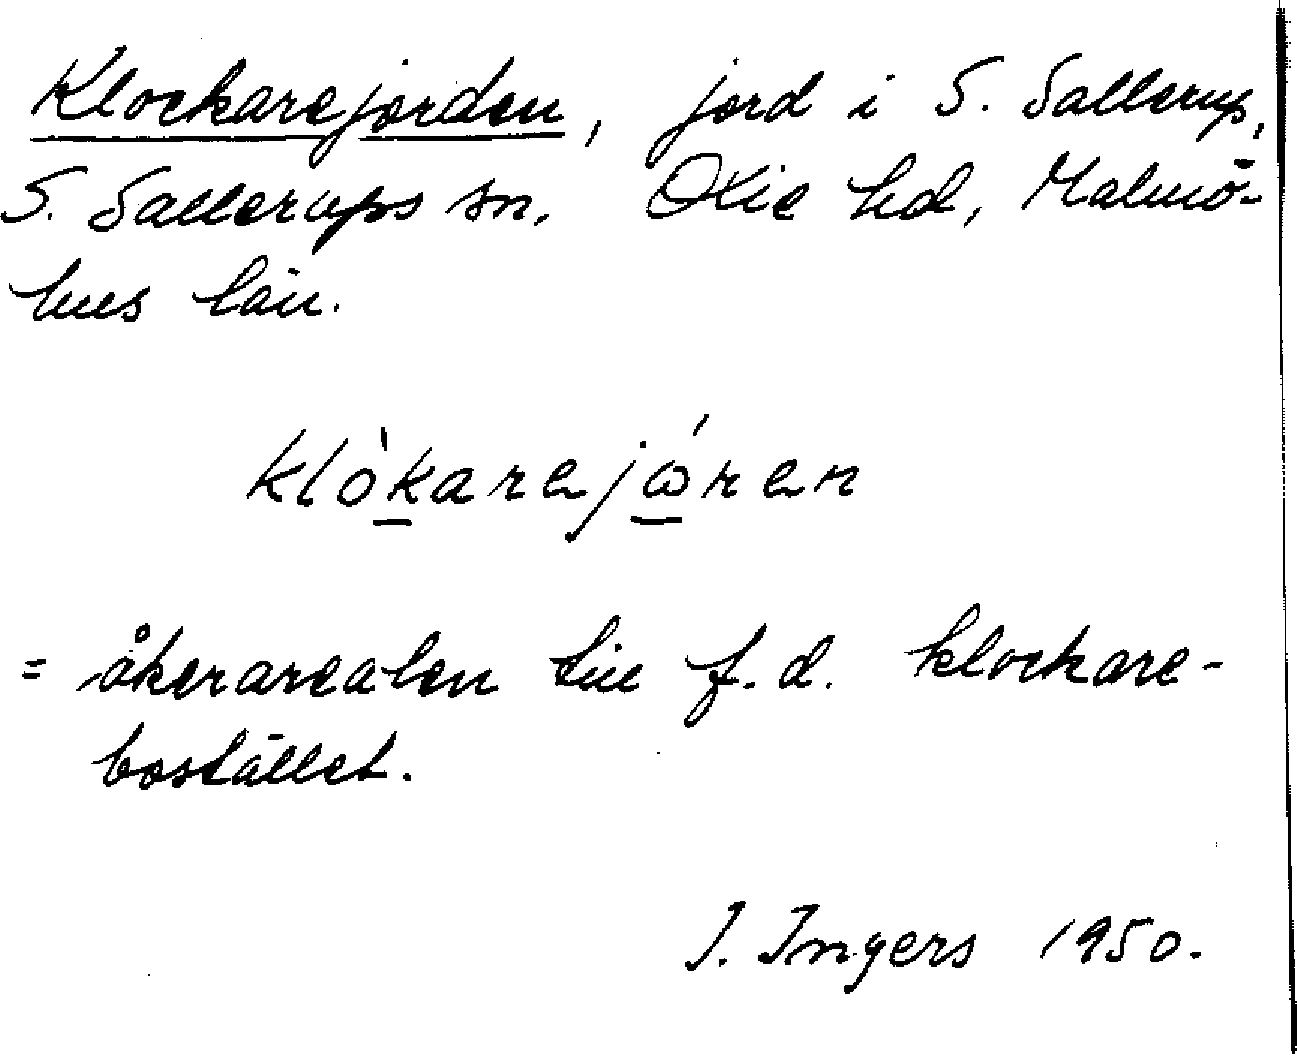 Klockarejorden, jord i S. Sallerup,
S. Sallerups sn, Oxie hd, Malmö-
hus län.
klòkarejǿren
= åkerarealen till f.d. klockare-
bostället.
I. Ingers 1950.